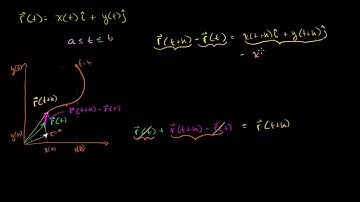 r⃗(t) = x(t)î + y(t)ĵ
a ≤ t ≤ b
r⃗(t+h) - r⃗(t) = x(t+h)î + y(t+h)ĵ
- x
y(b)
t=b
r⃗(t+h)
r⃗(t+h) - r⃗(t)
r⃗(t)
t=a
y(a)
x(a) x(b)
r⃗(t) + r⃗(t+h) - r⃗(t) = r⃗(t+h)